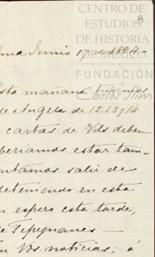 CENTRO DE
ESTUDIOS
DE HISTORIA
DE MÉXICO
FUNDACIÓN
Carlos Slim
Junio 17 de 1884
esta mañana
de Angela de 12, 13 y 14
cartas de Vds deben
beriamos estar tam
ntámos salir de
deteniendo en esta
espero esta tarde,
de Tepeguanes
Vos noticias; ó